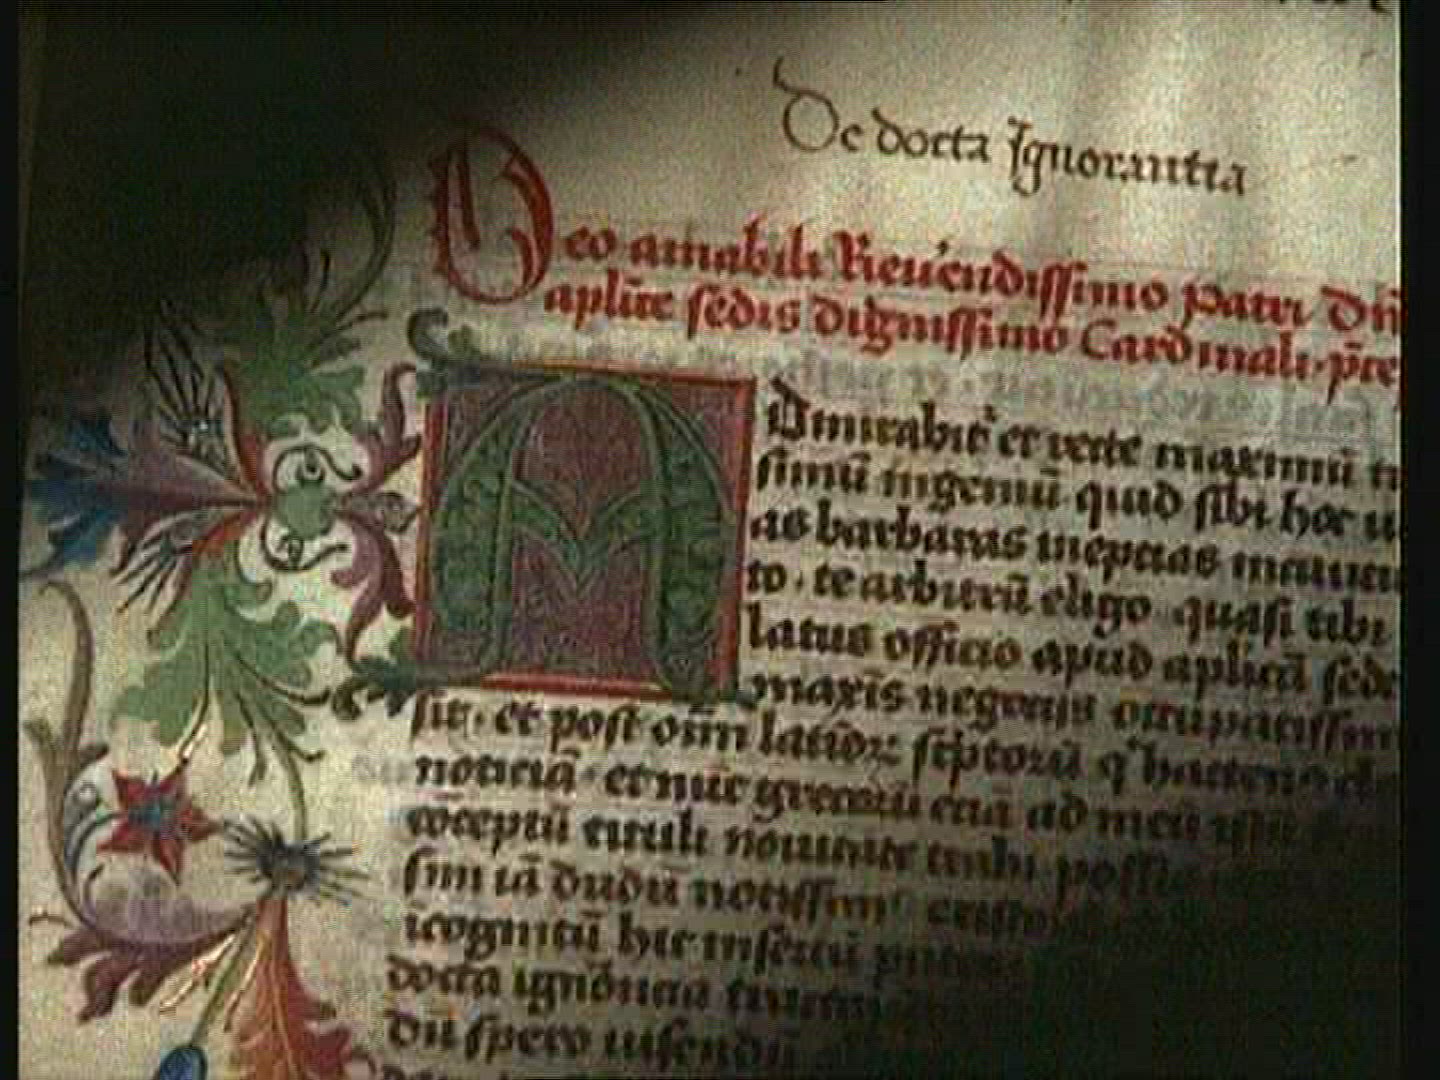 De docta Ignorantia
Deo amabili Reue᷑endissimo patri Dn̄
aplīce sedis dignissimo Cardinali. p̄re
Admirabit᷑ et recte maximū
simū ingeniū quid sibi hoc
as barbaras ineptias
to. te arbitrū eligo quasi tibi
latus officio apud aplicā sede
maxīs negotijs occupatissim
sit. et post om̄ī latioꝝ sc̄ptorū q̇ hacten᷒
noticiā. et nūc grecorū etiā ad meū
cōceptū tituli nouitate trahi possis
sim iā dudū notissim᷒
īcognitū hic insertū
docta ignōrātia
dū spero uisendū